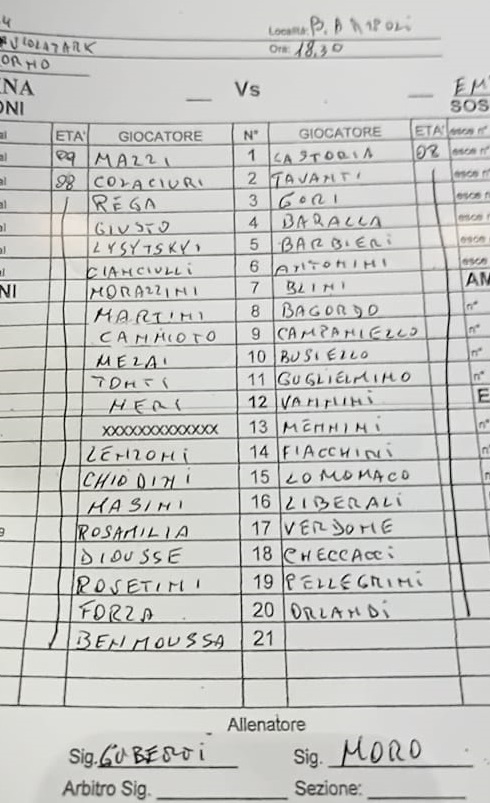 Località: B. A N POLI
Ora: 18,30
Vs
ONI SOS
ETA' GIOCATORE N° GIOCATORE ETA' esce n°
99 MAZZI 1 CASTORIA 02 esce n°
98 COLACIURI 2 TAVANTI
REGA 3 GORI
GIUSTO 4 BARALLA
LYSYTSKYI 5 BARBIERI
CIANCIULLI 6 ANTONINI
NI MORAZZINI 7 BLINI AN
MARTINI 8 BAGORDO n°
CANNIOTO 9 CAMPANIELLO n°
MEZAI 10 BUSIELLO n°
TONTI 11 GUGLIELMINO n°
NERI 12 VANNINI E
XXXXXXXXXXXXX 13 MENNINI n°
LENZONI 14 FIACCHINI
CHIODINI 15 LOMONACO
MASINI 16 LIBERALI
ROSAMILIA 17 VERDONE
DIOUSSE 18 CHECCACCI
ROSETINI 19 PELLEGRINI
FORZA 20 ORLANDI
BENMOUSSA 21
Allenatore
Sig. Sig. MORO
Arbitro Sig. Sezione: